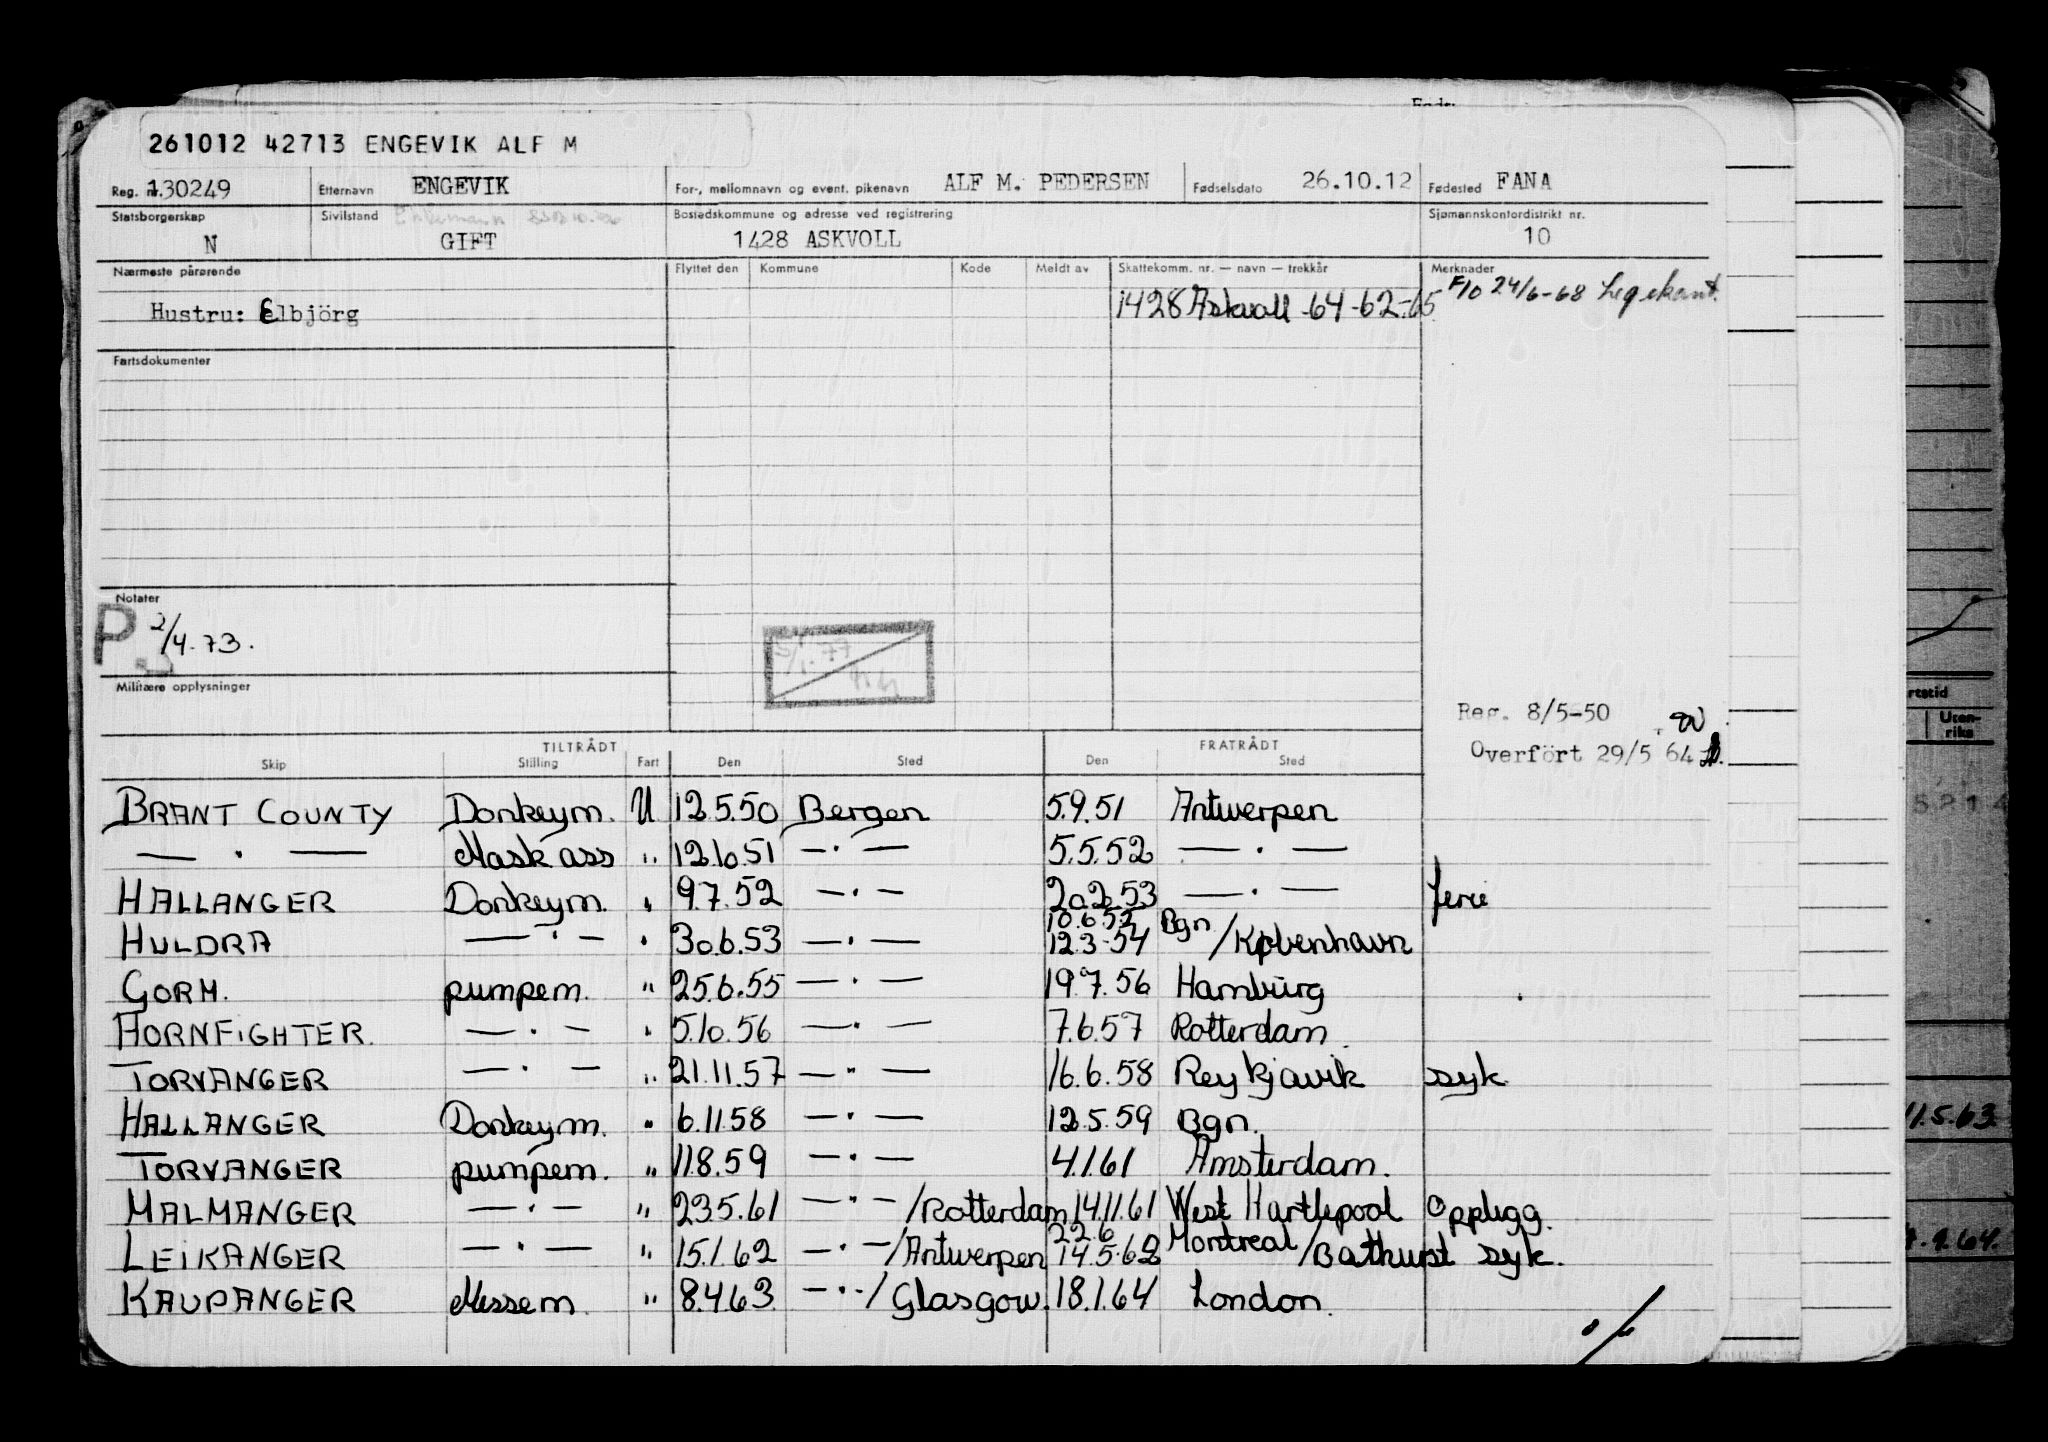 261012 42713 ENGEVIK ALF M
Reg. nr. 130249 Etternavn ENGEVIK For-, mellomnavn og event. pikenavn ALF M. PEDERSEN Fødselsdato 26.10.12 Fødested FANA
Statsborgerskap N Sivilstand GIFT Bostedskommune og adresse ved registrering 1428 ASKVOLL Sjømannskontordistrikt nr. 10
Nærmeste pårørende Flyttet den Kommune Kode Meldt av Skattekomm. nr. — navn — trekkår Merknader
Hustru: Elbjörg 1428 Askvoll -64-62-65 F/o 24/6-68 Legekont.
Fartsdokumenter
Notater
P 2/4.73.
Militære opplysninger
Reg. 8/5-50
Overfört 29/5 64
TILTRÅDT FRATRÅDT
Skip Stilling Fart Den Sted Den Sted
BRANT COUNTY Donkeym. U 12.5.50 Bergen 5.9.51 Antwerpen
— " — Mask ass " 12.10.51 — " — 5.5.52 — " —
HALLANGER Donkeym. " 9.7.52 — " — 20.2.53 — " — ferie
HULDRA — " — " 30.6.53 — " — 12.3.54 Bgn / København
GORM. pumpem. " 25.6.55 — " — 19.7.56 Hamburg
HORNFIGHTER. — " — " 5.10.56 — " — 7.6.57 Rotterdam.
TORVANGER — " — " 21.11.57 — " — 16.6.58 Reykjavik syk
HALLANGER Donkeym. " 6.11.58 — " — 12.5.59 Bgn.
TORVANGER pumpem. " 11.8.59 — " — 4.1.61 Amsterdam.
MALMANGER — " — " 23.5.61 — " — /Rotterdam 14.11.61 West Hartlepool Opplegg.
LEIKANGER — " — " 15.1.62 — " — /Antwerpen 22.6 14.5.62 Montreal /Bathurst syk.
KAUPANGER Messem. " 8.4.63 — " — / Glasgow. 18.1.64 London.
rtstid
Uten-
riks
11.5.63